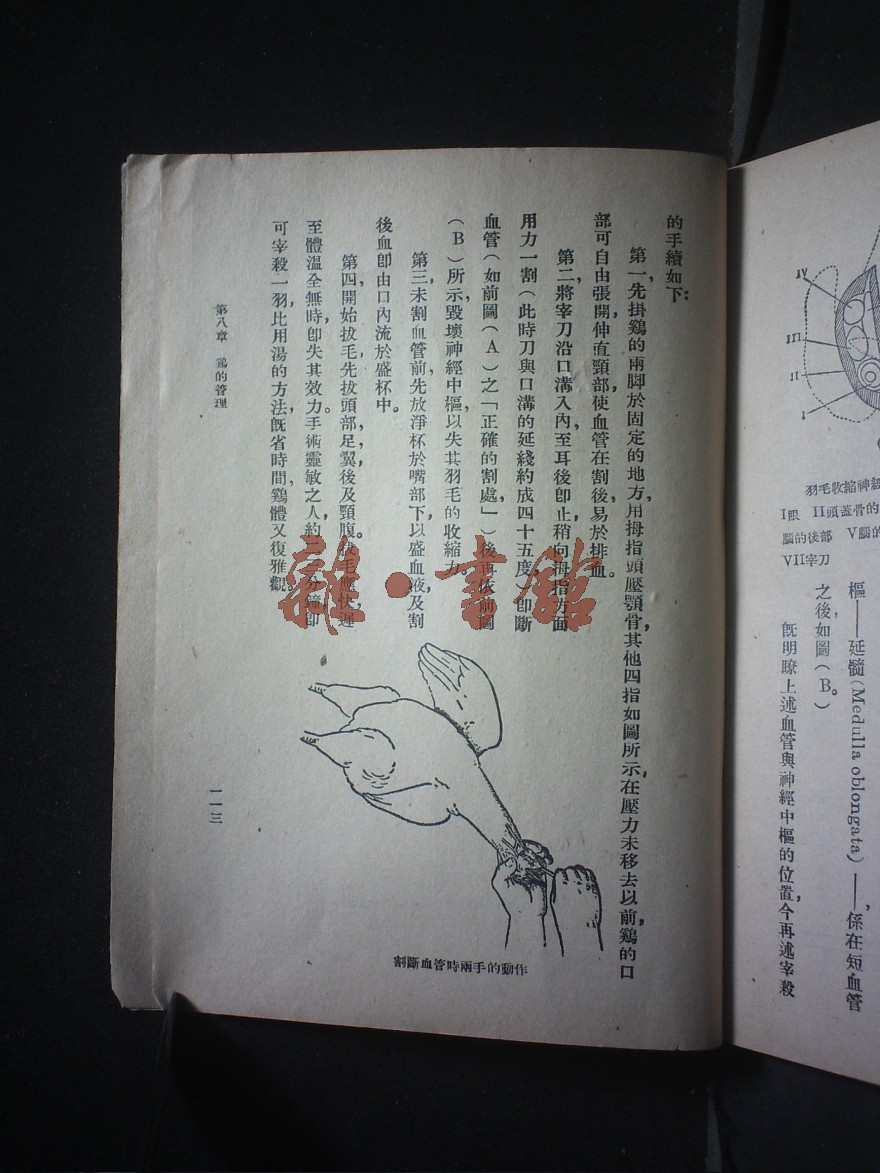 羽毛收縮神經
I眼 II頭蓋骨的
腦的後部 V腦的
VII宰刀
IV
III
II
I
樞——延髓(Medulla oblongata)——係在短血管
之後,如圖(B。)
既明瞭上述血管與神經中樞的位置,今再述宰殺
的手續如下:
第一,先掛鷄的兩脚於固定的地方,用拇指頭壓顎骨,其他四指如圖所示,在壓力未移去以前,鷄的口
部可自由張開,伸直頸部,使血管在割後,易於排血。
第二,將宰刀沿口溝入內,至耳後卽止,稍向拇指方面
用力一割(此時刀與口溝的延綫約成四十五度)卽斷
血管(如前圖(A)之「正確的割處」)後再依前圖
(B)所示,毀壞神經中樞,以失其羽毛的收縮力。
第三,未割血管前,先放淨杯於嘴部下,以盛血液,及割
後血卽由口內流於盛杯中。
第四,開始拔毛,先拔頭部,足,翼,後及頸腹。拔毛應快,遲
至體溫全無時,卽失其效力。手術靈敏之人,約三分鐘卽
可宰殺一羽,比用湯的方法,旣省時間,鷄體又復雅觀。
割斷血管時兩手的動作
第八章 鷄的管理
一一三
雜·書館